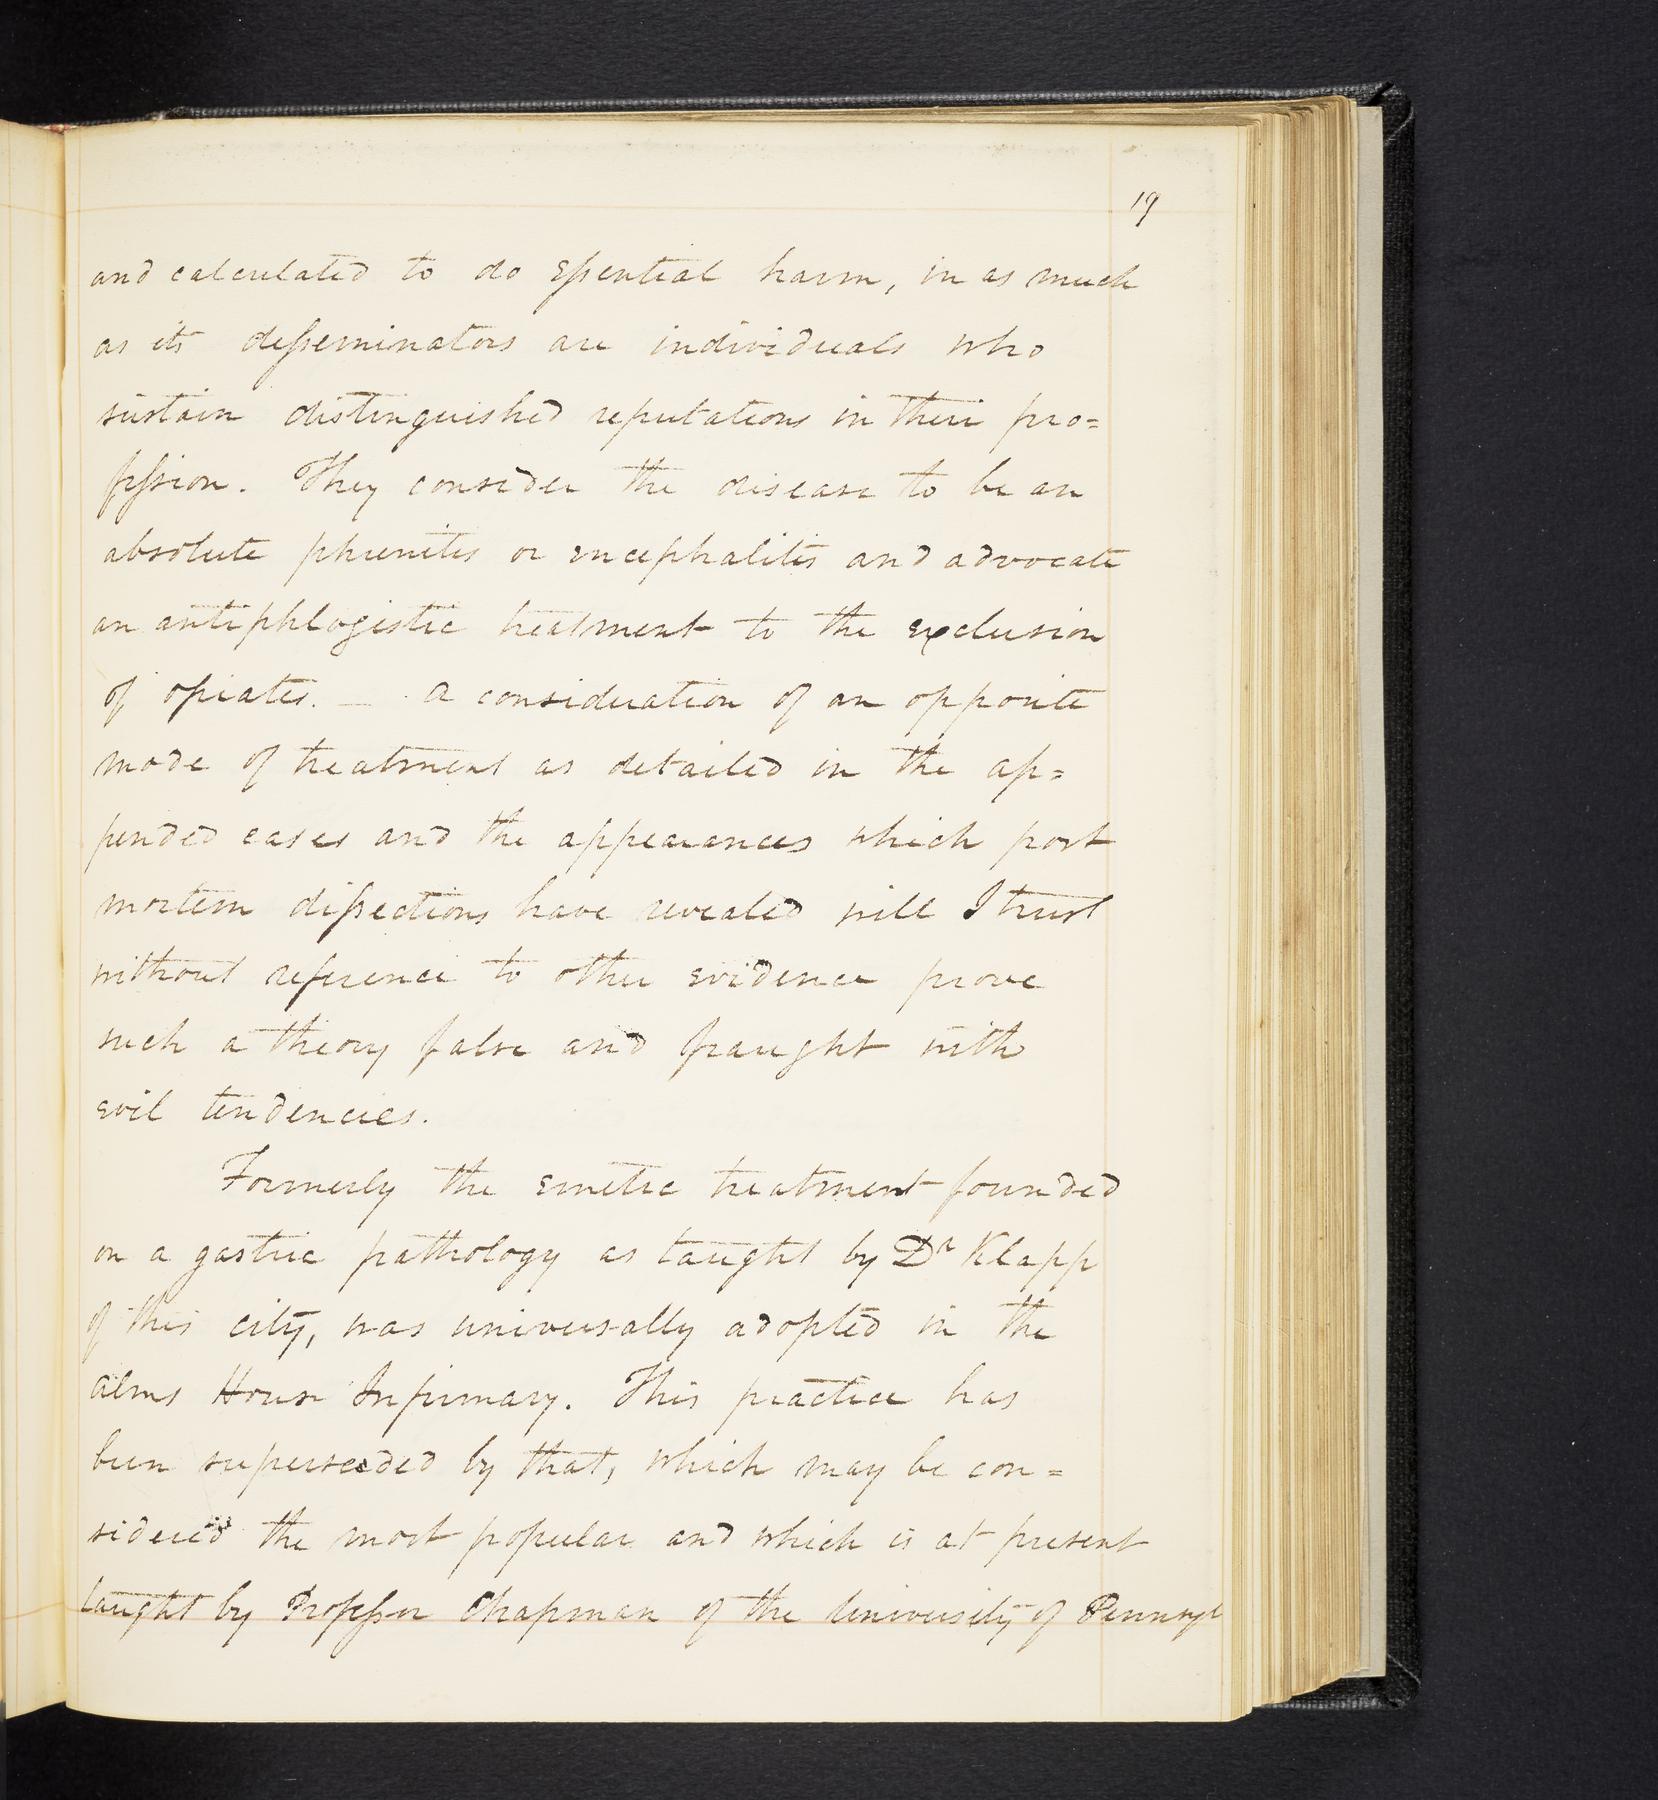 19
and calculated to do essential harm, in as much
as its desseminators are individuals who
sustain distinguished reputations in their pro=
fession. They consider the disease to be an
absolute phrenitis or encephalitis and advocate
an antiphlogistic treatment to the exclusion
of opiates. — A consideration of an opposite
mode of treatment as detailed in the ap=
pended cases and the appearances which post
mortem dissections have revealed will I trust
without reference to other evidence prove
such a theory false and fraught with
evil tendencies.
Formerly the emetic treatment founded
on a gastric pathology as taught by Dr Klapp
of this city, was universally adopted in the
Alms House Infirmary. This practice has
been superseded by that, which may be con=
sidered the most popular and which is at present
taught by Professor Chapman of the University of Pennsyl